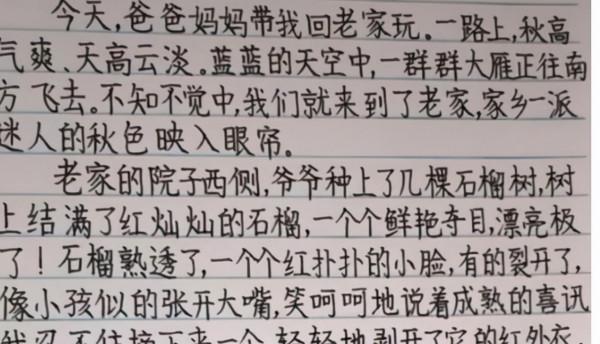 今天,爸爸妈妈带我回老家玩。一路上,秋高
气爽、天高云淡。蓝蓝的天空中,一群群大雁正往南
方飞去。不知不觉中,我们就来到了老家,家乡一派
迷人的秋色映入眼帘。
老家的院子西侧,爷爷种上了几棵石榴树,树
上结满了红灿灿的石榴,一个个鲜艳夺目,漂亮极
了!石榴熟透了,一个个红扑扑的小脸,有的裂开了,
像小孩似的张开大嘴,笑呵呵地说着成熟的喜讯
我忍不住摘下来一个,轻轻地剥开了它的红外衣,